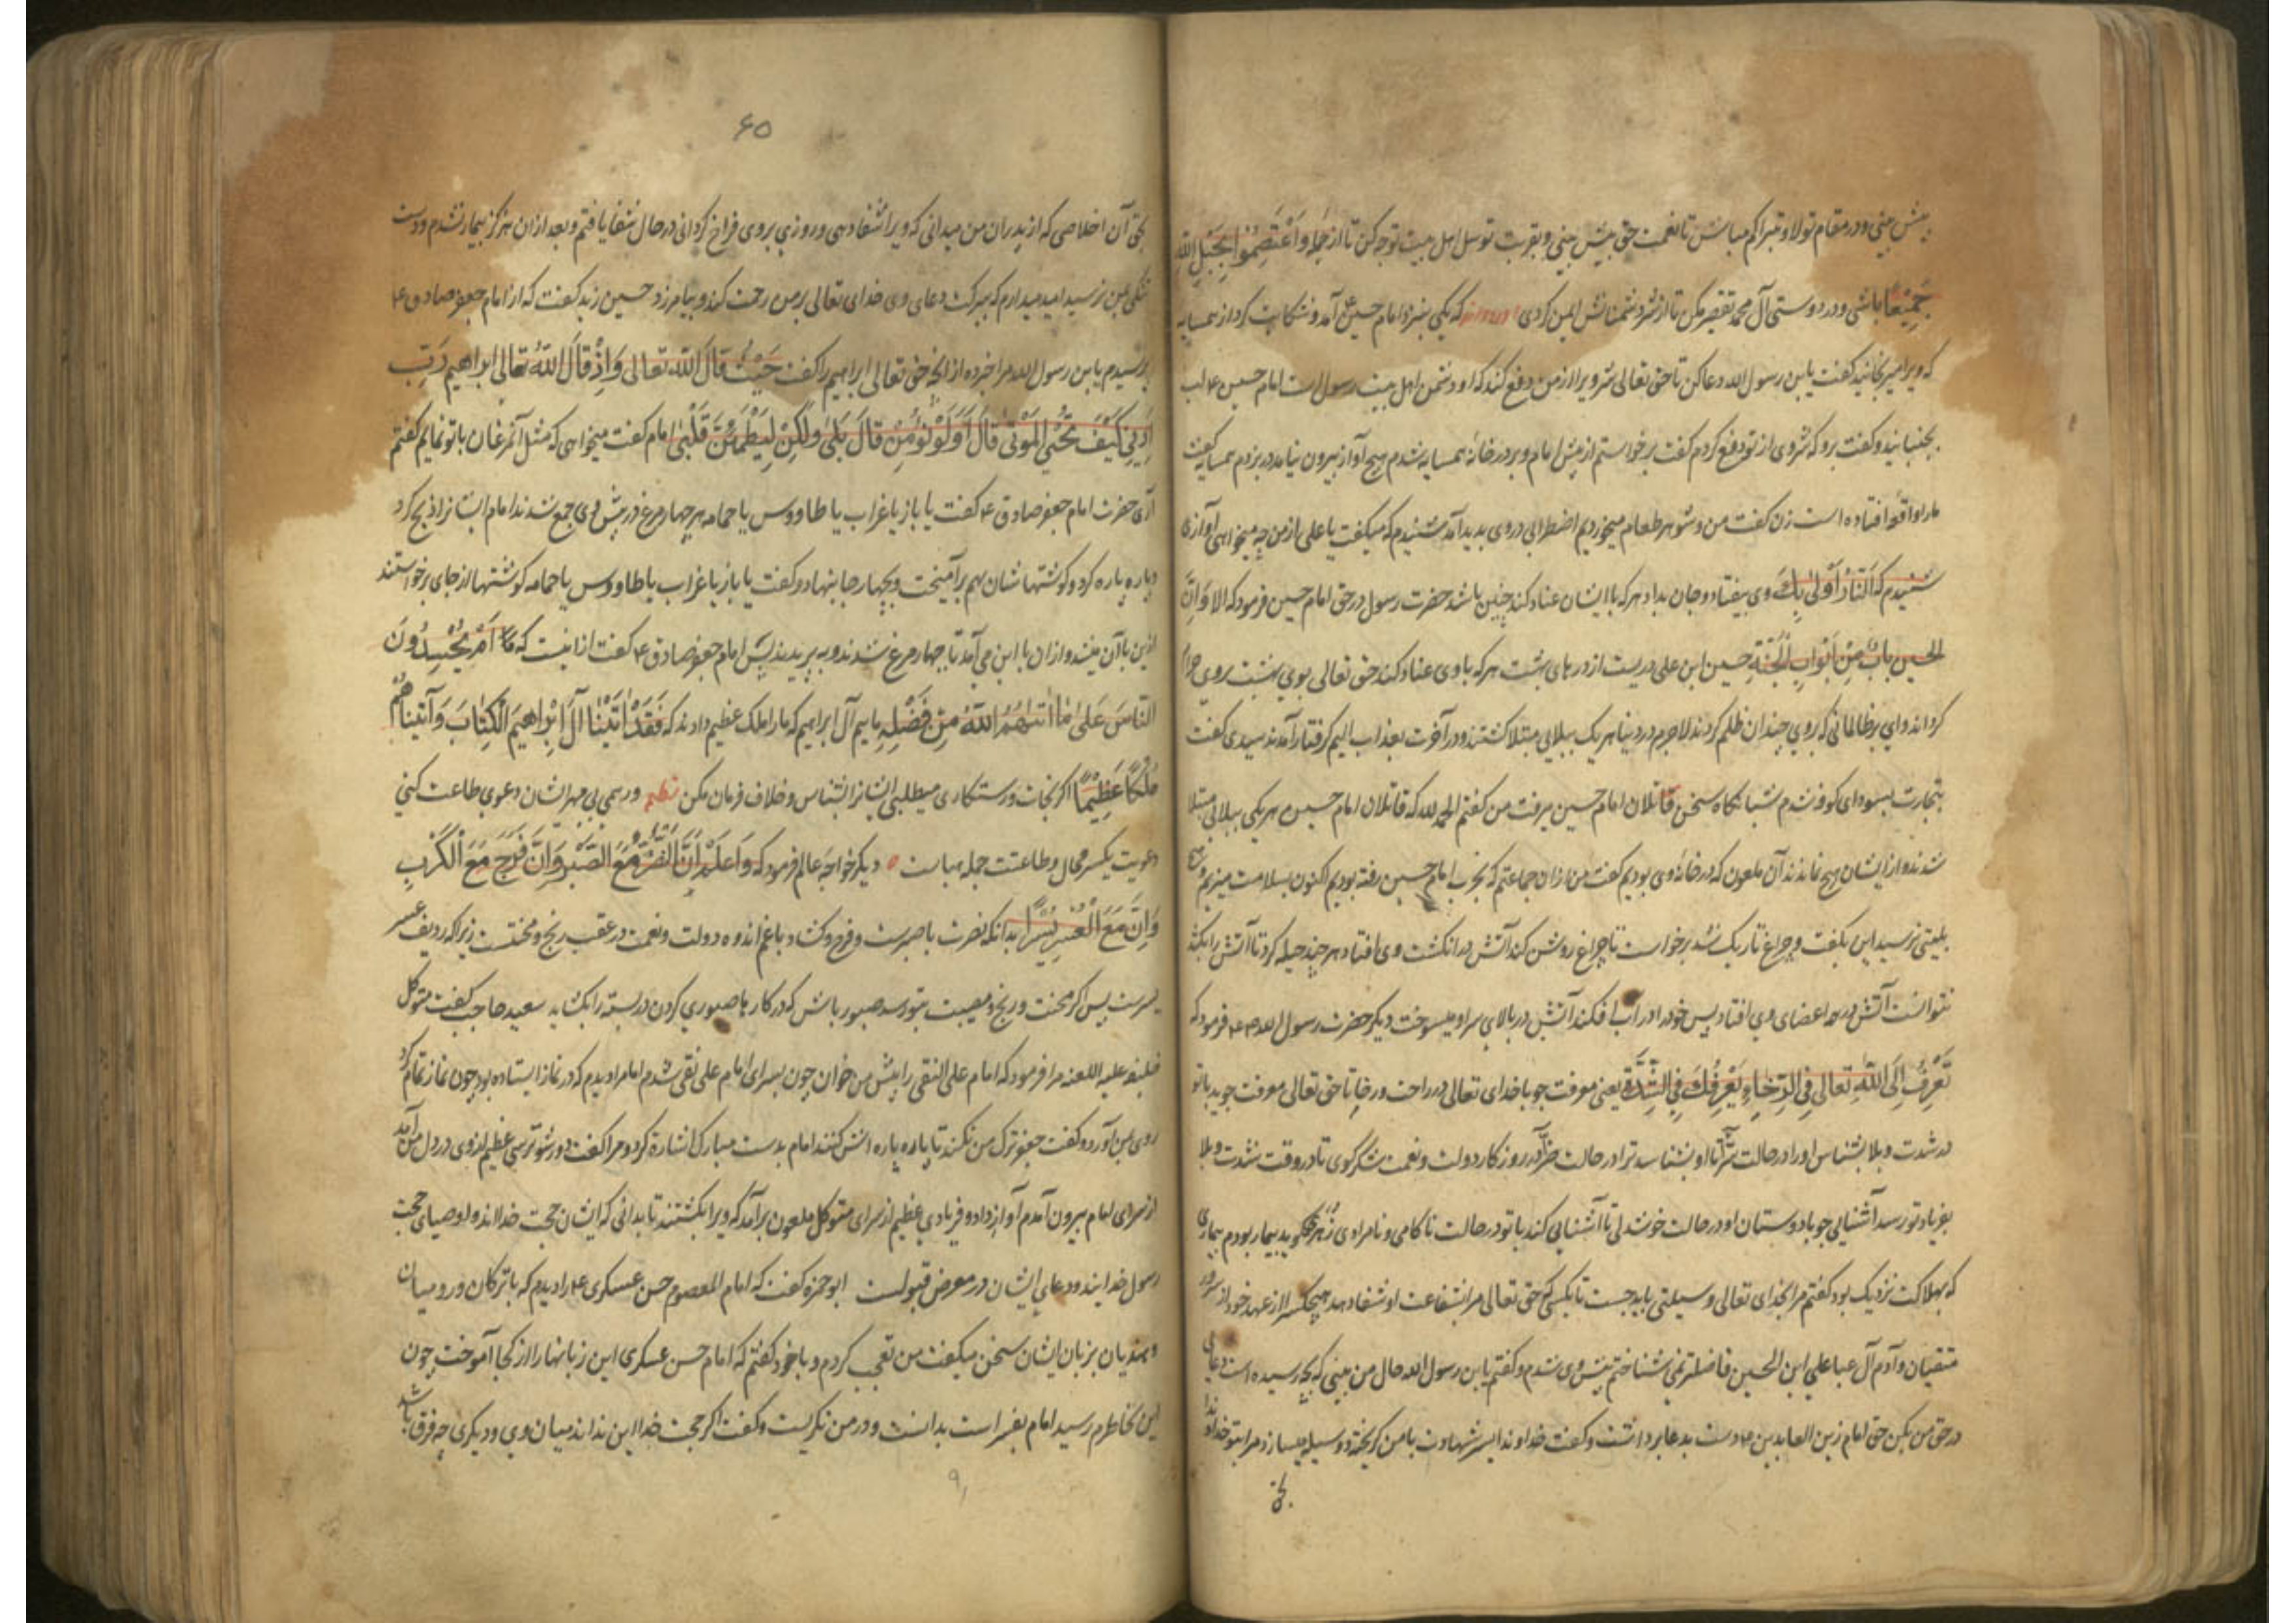 پیش بینی و در مقام تولا و تبرا کم مباش تا نعمت حق بیش بینی و بقربت توسل اهل بیت توجه کن تا از جمله وَاعْتَصِمُوا بِحَبْلِ اللهِ
جَمِیْعًا باشی و در دوستی آل محمد تقصیر مکن تا از شر دشمنانش ایمن کردی که یکی بنزد امام حسین ع آمد و شکایت کرد از همسایه
که ویرا میرنجانید کفت یابن رسول الله دعا کن تا حق تعالی شر ویرا از من دفع کند که او دشمن اهل بیت رسول است امام حسین ع لب
بجنبانید و کفت برو که شر وی از تو دفع کردم کفت برخواستم از پیش امام و بر در خانه همسایه شدم هیچ آواز بیرون نیامد در بزدم همسایه کفت
مارا واقعه افتاده است زن کفت من و شوهر طعام میخوردیم اضطرابی در وی پدید آمد شنیدم که میکفت یا علی از من چه میخواهی آوازی
شنیدم که اَلنَّارُ اَوْلیٰ بِكَ وی بیفتاد و جان بداد هر که با ایشان عناد کند چنین باشد حضرت رسول در حق امام حسین فرمود که الا وَاِنَّ
الحسین بابٌ مِنْ اَبْوَابِ الْجَنَّةِ حسین ابن علی دریست از درهای بهشت هر که با وی عناد کند حق تعالی بوی بهشت بر وی حرام
کرداند وای بر ظالمانی که بر وی چندان ظلم کردند لاجرم در دنیا هر یک ببلایی مبتلا کشتند و در آخرت بعذاب الیم کرفتار آمدند سیدی کفت
بتجارت بسودای کوفه شدم شبانکاه سخن قاتلان امام حسین میرفت من کفتم الحمد لله که قاتلان امام حسین هر یکی ببلائی مبتلا
شدند و از ایشان هیچ نماندند آن ملعون که در خانه وی بودیم کفت من از ان جماعتم که بحرب امام حسین رفته بودیم اکنون بسلامت میزیم و هیچ
بلیتی نرسید این بکفت و چراغ تاریک شد برخواست تا چراغ روشن کند آتش در انکشت وی افتاد هر چند حیله کرد تا آتش را بکشد
نتوانست آتش در همه اعضای وی افتاد پس خود را در آب افکند آتش در بالای سر او میسوخت دیکر حضرت رسول الله فرمود که
تَعَرَّفْ اِلَی اللهِ تعالی فِی الرَّخاءِ یَعْرِفُكَ فِی الشِّدَّةِ یعنی معرفت جو با خدای تعالی در راحت و رخا تا حق تعالی معرفت جوید با تو
در شدت و بلا بشناس او را در حالت سَرّا تا او بشناسد ترا در حالت ضَرّا در روزکار دولت و نعمت شکر کوی تا در وقت شدت و بلا
بفریاد تو رسد آشنایی جو با دوستان او در حالت خوشدلی تا آشنایی کند با تو در حالت ناکامی و نامرادی زهری کوید بیمار بودم بیماری
که بهلاکت نزدیک بود کفتم مرا بخدای تعالی وسیلتی باید جست تا بکسی که حق تعالی مرا بشفاعت او شفا دهد هیچکس را از عهد خود از سرور
متقیان و آدم آل عبا علی ابن الحسین فاضلتر نمی شناختم پیش وی شدم و کفتم یابن رسول الله حال من بینی که بچه رسیده است دعائی
در حق من بکن حق امام زین العابدین ع دست بدعا برداشت و کفت خداوندا پسر شهاب با من کریخته و وسیله میسازد مرا بتو خداوندا
بحق
۶۵
بحق آن اخلاصی که از پدران من میدانی که ویرا شفا دهی و روزی بر وی فراخ کردانی در حال شفا یافتم و بعد از ان هرکز بیمار نشدم و دست
تنکی بمن نرسید امید میدارم که ببرکت دعای وی خدای تعالی بر من رحمت کند و بیامرزد حسین زید کفت که از امام جعفر صادق ع
پرسیدم یابن رسول الله مرا خبر ده از انکه حق تعالی ابراهیم را کفت حَیْثُ قالَ الله تعالی وَاِذْ قالَ اللهُ تعالی ابراهیم رَبِّ
اَرِنِی کَیْفَ تُحْیِ الْمَوْتیٰ قالَ اَوَلَمْ تُؤْمِنْ قالَ بَلیٰ وَلٰکِنْ لِیَطْمَئِنَّ قَلْبِی امام کفت میخواهی که مثل آن مرغان با تو نمایم کفتم
آری حضرت امام جعفر صادق ع کفت یا باز یا غراب یا طاووس یا حمامه هر چهار مرغ در پیش وی جمع شدند امام ایشانرا ذبح کرد
و پاره پاره کرد و کوشتهاشان بهم برآمیخت و بچهار جا بنهاد و کفت یا باز یا غراب یا طاووس یا حمامه کوشتها از جای برخواستند
از ین با آن میشد و از ان با این می آمد تا چهار مرغ شدند و بپریدند پس امام جعفر صادق ع کفت از انست که اَمْ یَحْسُدُونَ
النّاسَ عَلیٰ مٰا اٰتٰیهُمُ اللهُ مِنْ فَضْلِهِ ماییم آل ابراهیم که مارا ملک عظیم دادند که فَقَدْ اٰتَیْنٰا آلَ اِبْرٰاهیمَ الْکِتٰابَ وَآتَیناهُمْ
مُلْکًا عَظِیْمًا اکر نجات و رستکاری میطلبی ایشانرا بشناس و خلاف فرمان مکن نظم ور همی بی مهر ایشان دعوی طاعت کنی
دعویت یکسر محال و طاعتت جمله هباست ه دیکر خواجه عالم فرمود که وَاعلَمْ اَنَّ النَّصْرَ مَعَ الصَّبْرِ وَاِنَّ فَرَجَ مَعَ الْکَرْبِ
وَاِنَّ مَعَ الْعُسْرِ یُسْرًا بدانکه نصرت با صبرست و فرح و کشاد با غم اندوه دولت و نعمت در عقب رنج و محنتست زیرا که ردیف عسر
یسرست پس اکر محنت و رنج و مصیبت بتو رسد صبور باش که در کارها صبوری کردن در بسته را بکشاید سعید حاجب کفت متوکل
خلیفه علیه اللعنه مرا فرمود که امام علی النقی را پیش من خوان چون بسرای امام علی نقی شدم امام را دیدم که در نماز ایستاده بود چون نماز تمام کرد
روی بمن آورده کفت جعفر ترک من نکند تا پاره پاره اش کنند امام بدست مبارک اشارة کرد و مرا کفت دور شو ترسی عظیم از وی در دل من آمد
از سرای امام بیرون آمدم آواز داد و فریادی عظیم از سرای متوکل ملعون برآمد که ویرا بکشتند تا بدانی که ایشان حجت خدااند و اوصیای حجت
رسول خدایند و دعای ایشان در معرض قبولست ابوحمزه کفت که امام المعصوم حسن عسکری ع را دیدم که با ترکان و رومیان
و هندیان بزبان ایشان سخن میکفت من تعجب کردم و با خود کفتم که امام حسن عسکری این زبانها را از کجا آموخت چون
این بخاطرم رسید امام بفراست بدانست و در من نکریست و کفت اکر حجت خدا این نداند میان وی و دیکری چه فرق باشد